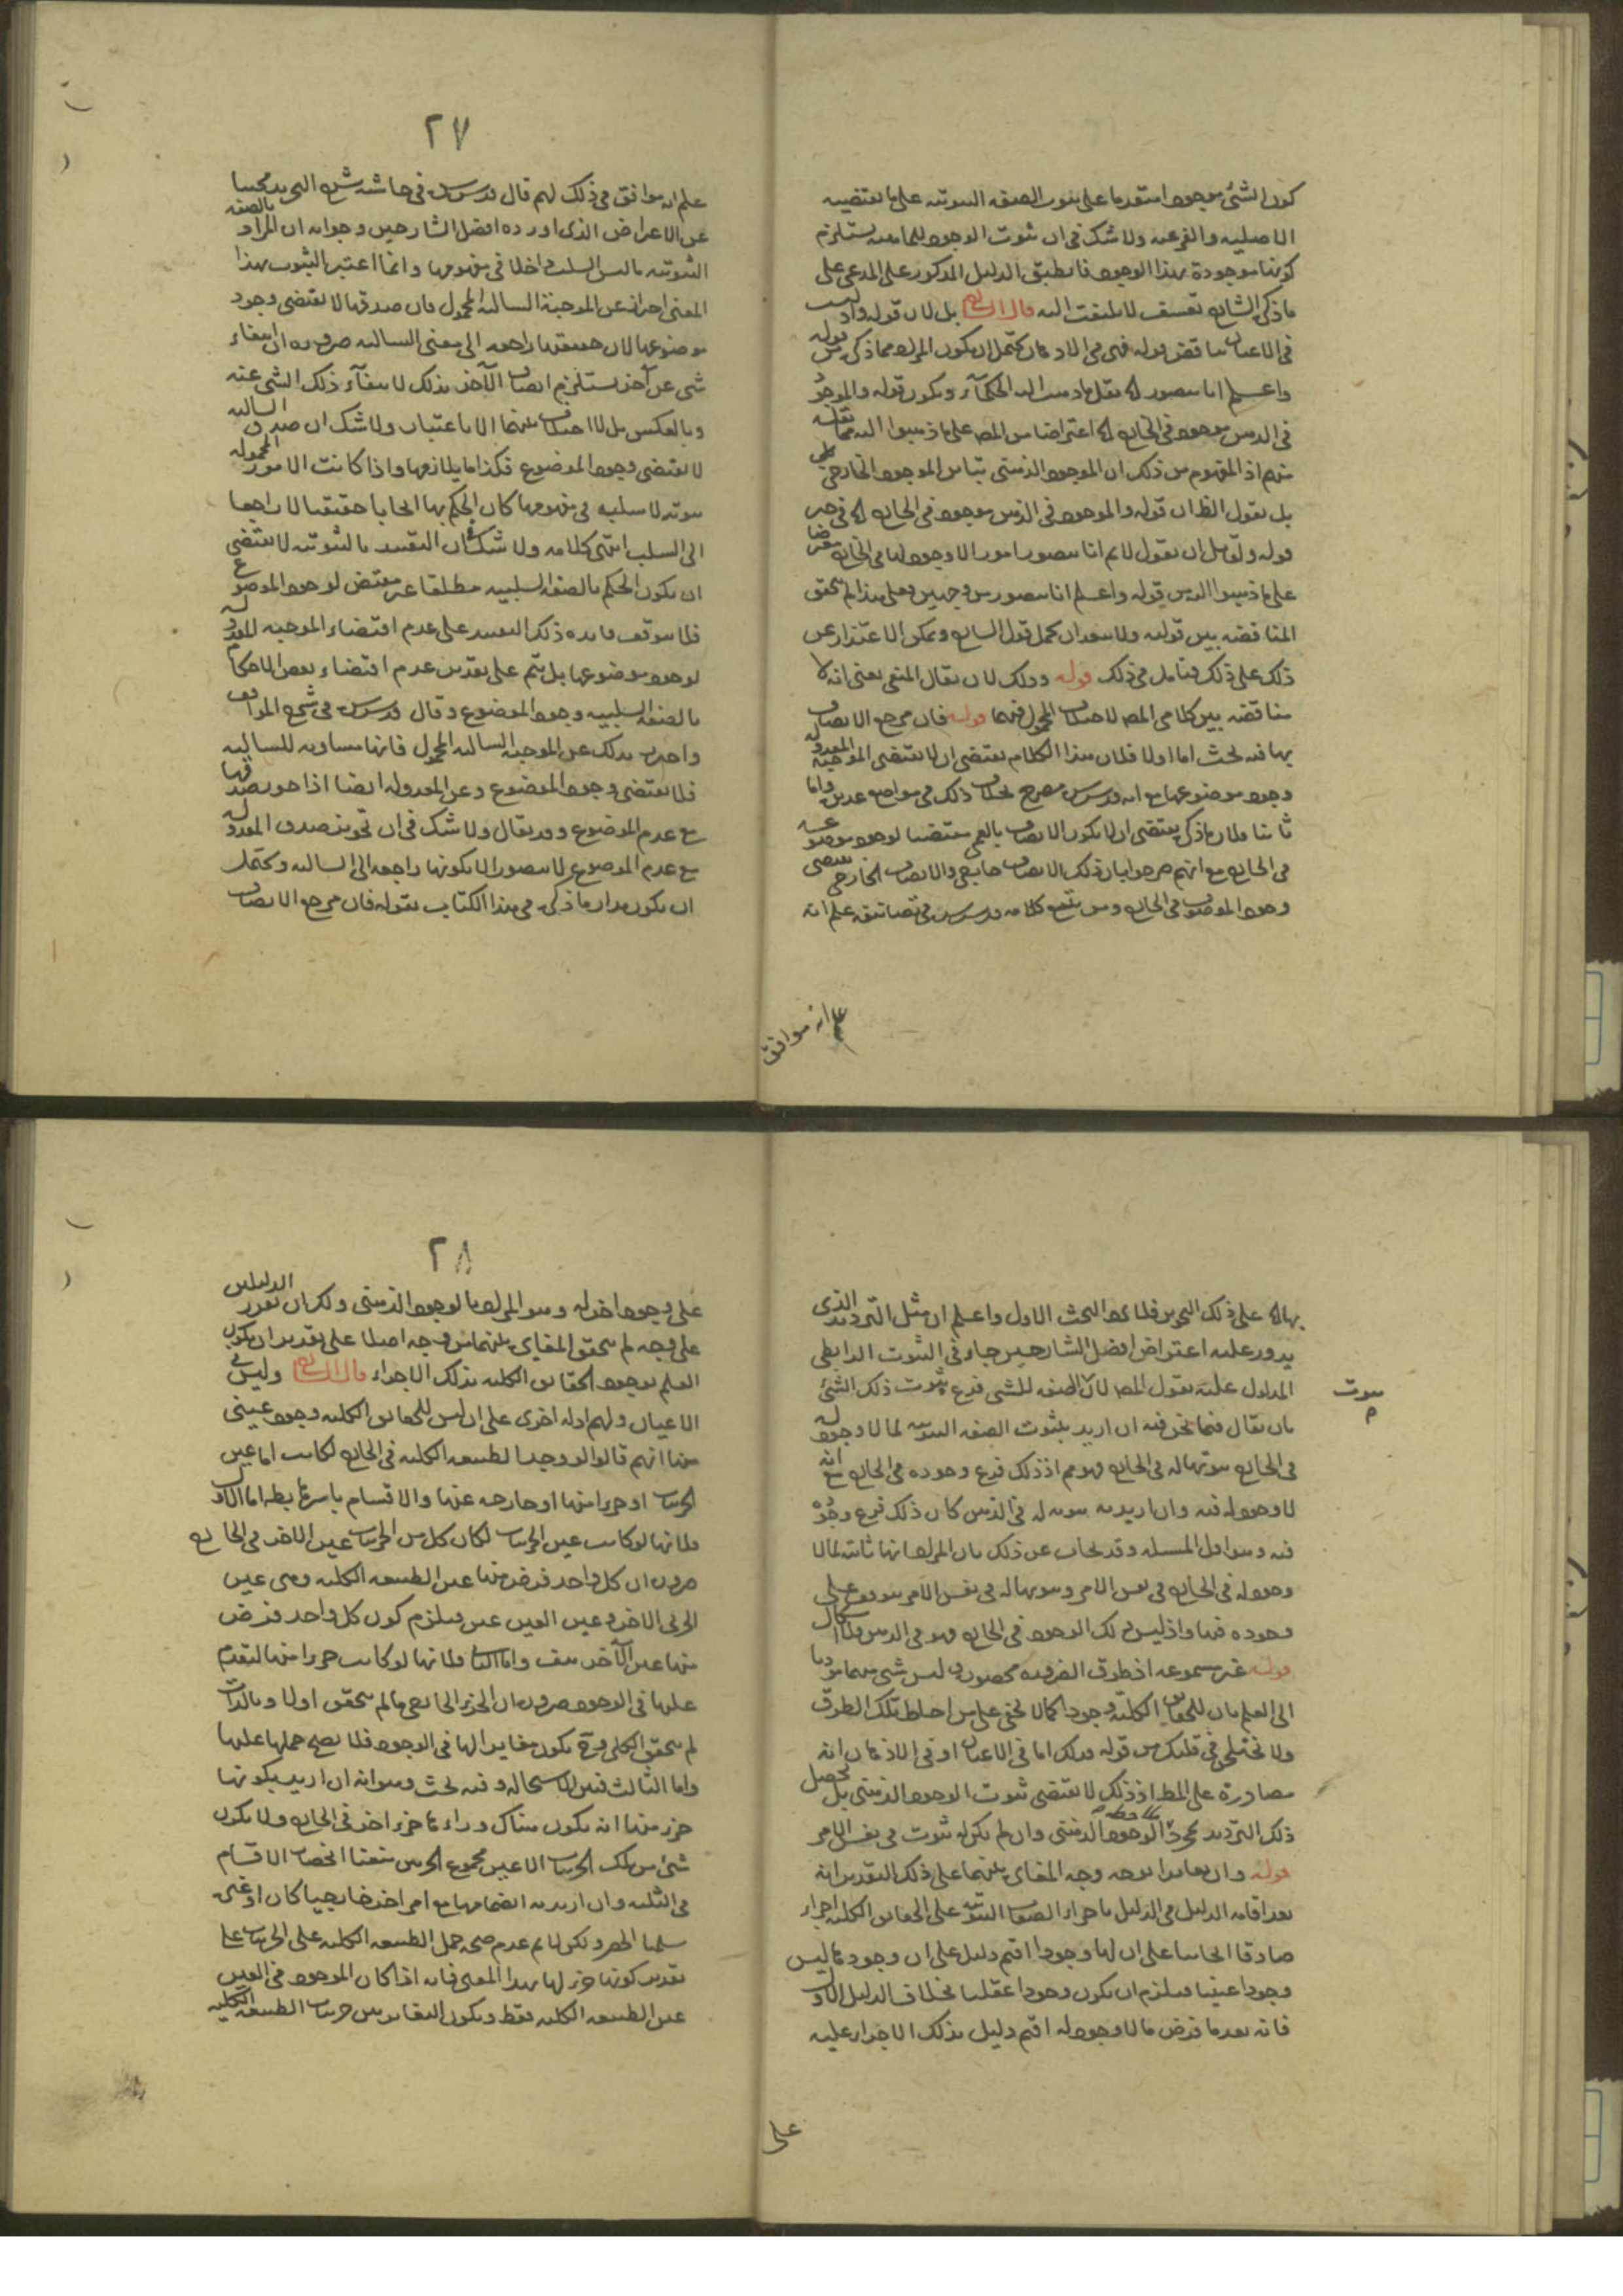 كون الشئ موجودا متقدما على ثبوت الصفة الثبوتية على ما تقتضيه
الاصلية والفرعية ولا شك فى ان ثبوت الوجود للماهية يستلزم
كونها موجودة بهذا الوجود فانطبق الدليل المذكور على المدعى على
ما ذكره الشارح تعسف لا يلتفت اليه قال الشارح بل لان قوله
فى الاعيان يناقض قوله فهى فى الاذهان يحتمل ان يكون المراد مما ذكره من قوله
واعلم انا نتصور الخ نقل ما ذهب اليه الحكماء ويكون قوله والموجود
فى الذهن موجود فى الخارج الخ اعتراضا من المص على ما ذهبوا اليه
منهم اذ المفهوم من ذلك ان الموجود الذهنى يباين الموجود الخارجى
بل نقول الظ ان قوله والموجود فى الذهن موجود فى الخارج الخ فى حيز
قوله ولقائل ان يقول لا نم انا نتصور امورا لا وجود لها فى الخارج
على ما ذهبوا اليه من قوله واعلم انا نتصور من وجهين وعلى هذا لم يتحقق
المناقضة بين قوليه ولا يبعد ان يحمل قول الشارح ويمكن الاعتذار عن
ذلك على ذلك فتأمل فى ذلك قوله وذلك لان يقال المنفى يعنى انه لا
مناقضة بين كلامى المص لاختلاف المحمول فيهما قوله فان مرجع الاتصاف
بها فيه بحث اما اولا فلان هذا الكلام يقتضى ان لا تقتضى الموجبة المعدولة
وجود موضوعها مع انه قدس سره مصرح بخلاف ذلك فى مواضع عديدة واما
ثانيا فلان ما ذكره يقتضى ان لا يكون الاتصاف بالعمى مقتضيا لوجود موضوعه
فى الخارج مع انهم صرحوا بان ذلك الاتصاف خارجى والاتصاف الخارجى يقتضى
وجود الموصوف فى الخارج ومن تتبع كلامه قدس سره فى تصانيفه علم انه
علم انه موافق
٢٧
علم انه موافق فى ذلك لهم قال قدس سره فى حاشية شرح التجريد مجيبا
عن الاعراض الذى اورده افضل الشارحين وجوابه ان المراد بالصفة
الثبوتية ما ليس السلب داخلا فى مفهومها وانما اعتبر الثبوت بهذا
المعنى احترازا عن الموجبة السالبة المحمول فان صدقها لا يقتضى وجود
موضوعها لان حقيقتها راجعة الى معنى السالبة ضرورة ان انتفاء
شئ عن آخر يستلزم اتصاف الآخر بذلك لانتفاء ذلك الشئ عنه
وبالعكس بل لا اختلاف بينهما الا بالاعتبار ولا شك ان صدق السالبة
لا يقتضى وجود الموضوع فكذا ما يلازمها واذا كانت الامور المحمولة
ثبوتية لا سلبية فى مفهومها كان الحكم بها ايجابا حقيقيا لا راجعا
الى السلب انتهى كلامه ولا شك فى ان التقييد بالثبوتية لا يقتضى
ان يكون الحكم بالصفة السلبية مطلقا غير مقتض لوجود الموضوع
فلا يتوقف فائدة ذلك التقييد على عدم اقتضاء الموجبة المعدولة
لوجود موضوعها بل يتم على تقدير عدم اقتضاء بعض الاحكام
بالصفة السلبية وجود الموضوع وقال قدس سره فى شرح المواقف
واحترز بذلك عن الموجبة السالبة المحمول فانها مساوية للسالبة
فلا يقتضى وجود الموضوع وعن المعدولة ايضا اذا جوز صدقها
مع عدم الموضوع وقد يقال ولا شك فى ان تجويز صدق المعدولة
مع عدم الموضوع لا يتصور الا بكونها راجعة الى السالبة ويحتمل
ان يكون مدار ما ذكره فى هذا الكتاب بقوله فان مرجع الاتصاف
بها الخ على ذلك التجويز فلا يرد البحث الاول واعلم ان مثل الترديد الذى
يدور عليه اعتراض افضل الشارحين جار فى الثبوت الرابطى
المدلول عليه بقول المص لان الصفة للشئ فرع ثبوت ذلك الشئ
ثبوت
بان يقال فيما نحن فيه ان اريد بثبوت الصفة الثبوتية لما لا وجود له
فى الخارج ثبوتها له فى الخارج فهو مم اذ ذلك فرع وجوده فى الخارج مع انه
لا وجود له فيه وان اريد به ثبوته له فى الذهن كان ذلك فرع وجوده
فيه وهو اول المسئلة وقد يجاب عن ذلك بان المراد انها ثابتة لما لا
وجود له فى الخارج فى نفس الامر وثبوتها له فى نفس الامر موقوف على
وجوده فيها واذ ليس ذلك الوجود فى الخارج فهو فى الذهن
قوله غير مسموعة اذ طرق الضرورة محصورة وليس شئ منها مؤديا
الى العلم بان للحقايق الكلية وجودا كما لا يخفى على من احاط بتلك الطرق
ولا يختلجن فى قلبك من قوله وذلك اما فى الاعيان او فى الاذهان انه
مصادرة على المط اذ ذلك لا يقتضى ثبوت الوجود الذهنى بل يحصل
ذلك الترديد بمجرد الوجود الذهنى وان لم يكن له ثبوت فى نفس الامر
قوله وان تغايرا بوجه وجه المغايرة بينهما على ذلك التقدير انه
بعد اقامة الدليل فى الدليل باجراء الصفات الثبوتية على الحقايق الكلية اجراء
صادقا ايجابيا على ان لها وجودا اقيم دليل على ان وجودها ليس
وجودا عينيا فيلزم ان يكون وجودا عقليا بخلاف الدليل الاول
فانه بعد ما فرض ما لا وجود له اقيم دليل بذلك الاجراء عليه
على
٢٨
على وجود آخر له وهو المراد بالوجود الذهنى ولك ان تقرر الدليلين
على وجه لم يتحقق المغايرة بينهما من وجه اصلا على تقدير ان يكون
العلم بوجود الحقايق الكلية بذلك الاجراء قال الشارح وليس فى
الاعيان ولهم ادلة اخرى على ان ليس للحقايق الكلية وجود عينى
منها انهم قالوا لو وجد الطبيعة الكلية فى الخارج لكانت اما عين
الجزئيات او جزءا منها او خارجة عنها والاقسام باسرها بطة اما الاول
فلانها لو كانت عين الجزئيات لكان كل من الجزئيات عين الآخر فى الخارج
ضرورة ان كل واحد فرض منها عين الطبيعة الكلية وهى عين
الجزئى الآخر وعين العين عين فيلزم كون كل واحد فرض
منها عين الآخر هف واما الثانى فلانها لو كانت جزءا منها لتقدم
عليها فى الوجود ضرورة ان الجزء الخارجى ما لم يتحقق اولا وبالذات
لم يتحقق الكل وح يكون مغايرا لها فى الوجود فلا يصح حملها عليها
واما الثالث فبين الاستحالة وفيه بحث وهو انه ان اريد بكونها
جزء منها انه يكون هناك وراءها جزء آخر فى الخارج ولا يكون
شئ من تلك الجزئيات الا عين مجموع الجزئين منعنا انحصار الاقسام
فى الثلثة وان اريد به انضمامها مع امر آخر خارجيا كان او غيره
سلمنا الحصر ولكن لا نم عدم صحة حمل الطبيعة الكلية على الجزئيات على
تقدير كونها جزء لها بهذا المعنى فانه اذا كان الموجود فى العين
عين الطبيعة الكلية فقط ويكون التغاير بين جزئيات الطبيعة الكلية